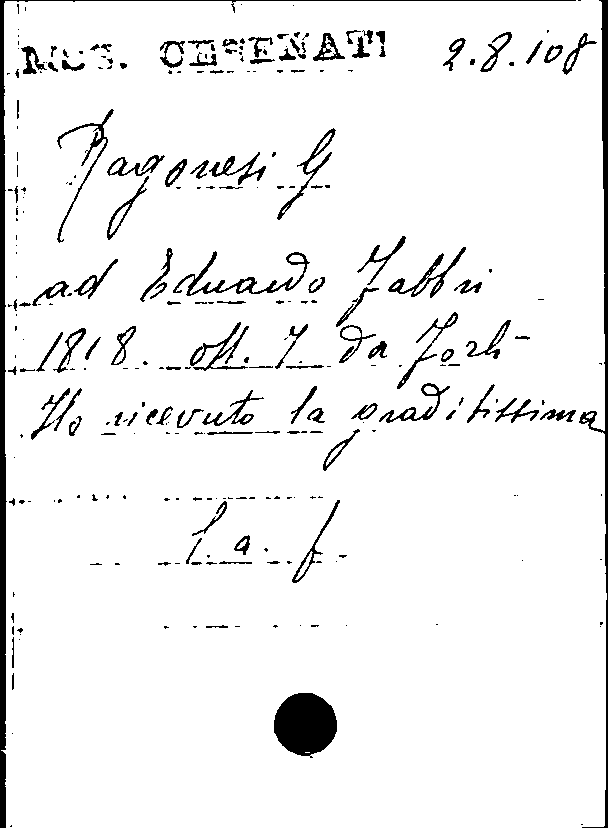 MSS. CESENATI 2.8.108
Ragonesi G
ad Eduardo Fabbri
1818. ott. 7. da Forlì
Ho ricevuto la graditissima
l. a. f.